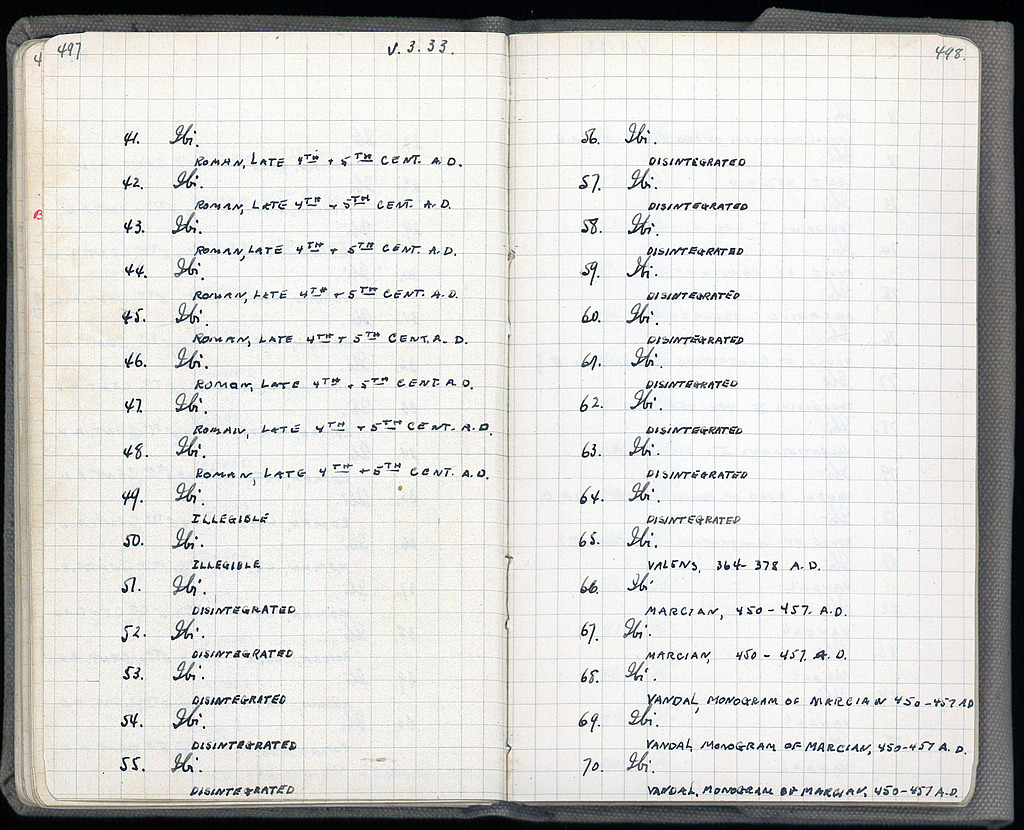 497
V. 3. 33.
41. Ibi.
ROMAN, LATE 4TH + 5TH CENT. A.D.
42. Ibi.
ROMAN, LATE 4TH + 5TH CENT. A.D.
43. Ibi.
ROMAN, LATE 4TH + 5TH CENT. A.D.
44. Ibi.
ROMAN, LATE 4TH + 5TH CENT. A.D.
45. Ibi.
ROMAN, LATE 4TH + 5TH CENT. A. D.
46. Ibi.
ROMAN, LATE 4TH + 5TH CENT. A.D.
47. Ibi.
ROMAN, LATE 4TH + 5TH CENT. A.D.
48. Ibi.
ROMAN, LATE 4TH + 5TH CENT. A.D.
49. Ibi.
ILLEGIBLE
50. Ibi.
ILLEGIBLE
51. Ibi.
DISINTEGRATED
52. Ibi.
DISINTEGRATED
53. Ibi.
DISINTEGRATED
54. Ibi.
DISINTEGRATED
55. Ibi.
DISINTEGRATED
498.
56. Ibi.
DISINTEGRATED
57. Ibi.
DISINTEGRATED
58. Ibi.
DISINTEGRATED
59. Ibi.
DISINTEGRATED
60. Ibi.
DISINTEGRATED
61. Ibi.
DISINTEGRATED
62. Ibi.
DISINTEGRATED
63. Ibi.
DISINTEGRATED
64. Ibi.
DISINTEGRATED
65. Ibi.
VALENS, 364-378 A.D.
66. Ibi
MARCIAN, 450-457. A.D.
67. Ibi.
MARCIAN, 450-457. A.D.
68. Ibi.
VANDAL, MONOGRAM OF MARCIAN 450-457 AD
69. Ibi.
VANDAL MONOGRAM OF MARCIAN, 450-457 A.D.
70. Ibi.
VANDAL, MONOGRAM OF MARCIAN, 450-457 A.D.